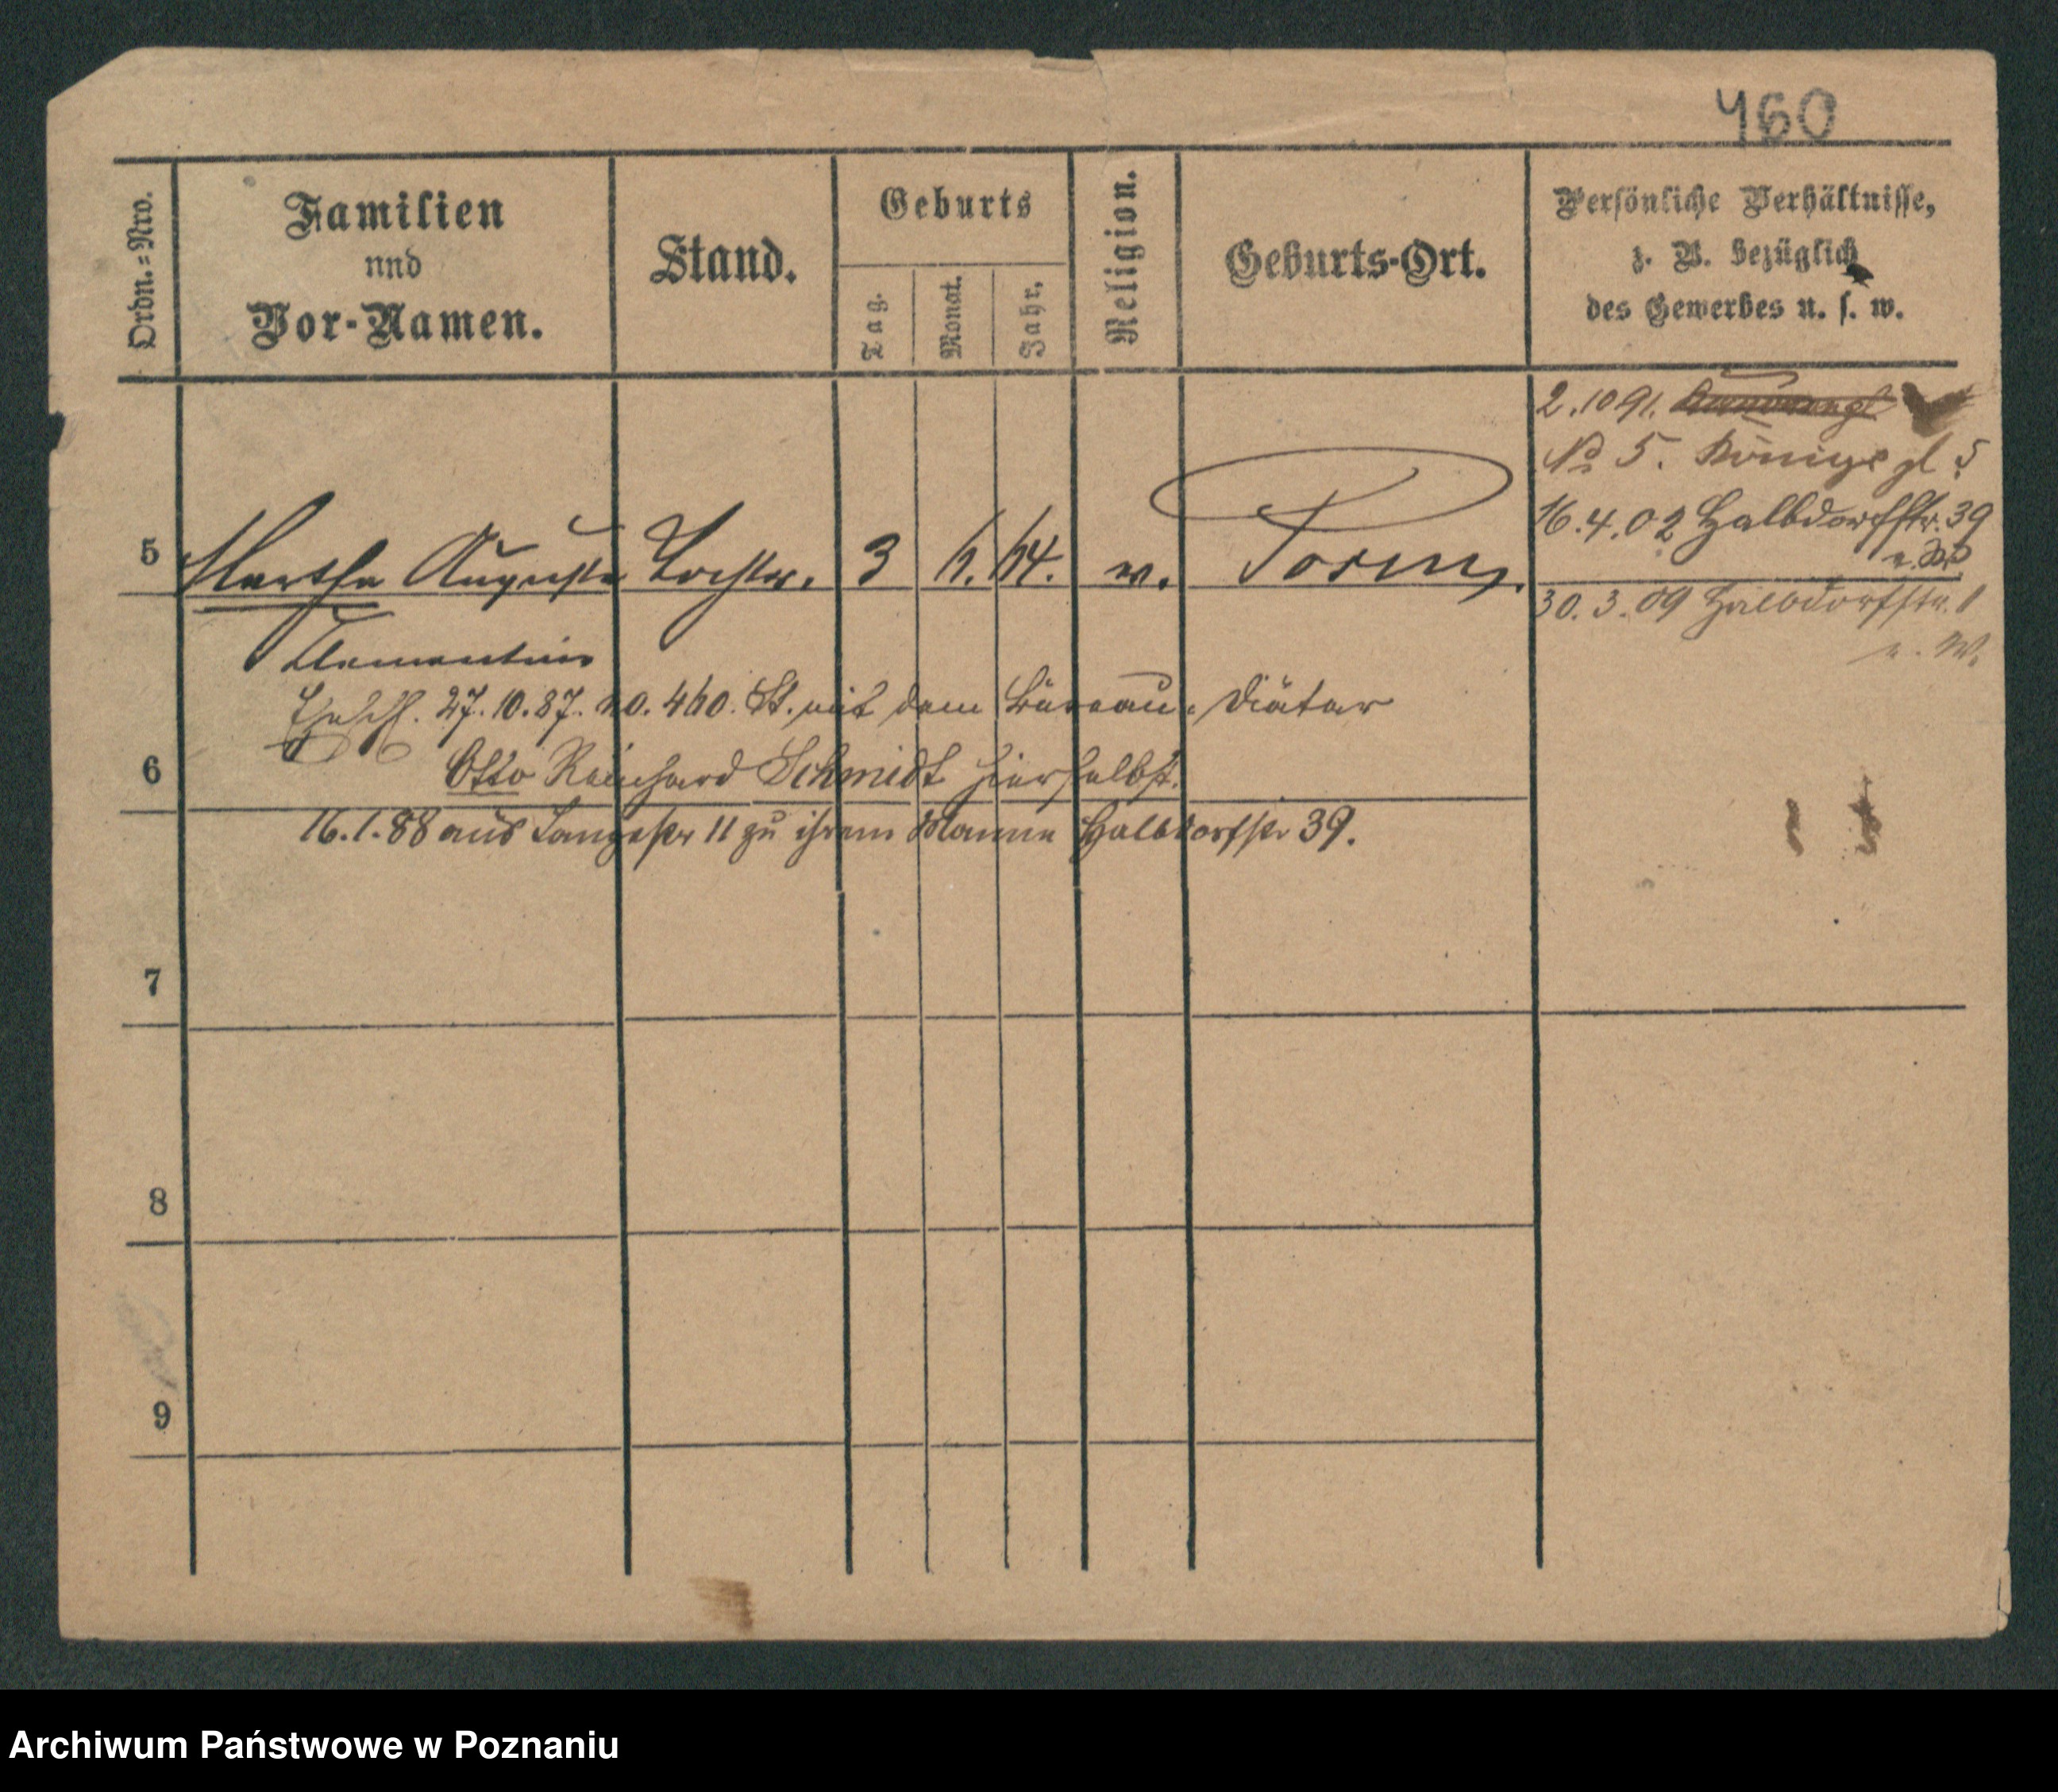 460
Ordn.=Nro.
Familien
und
Vor-Namen.
Stand.
Geburts
Tag.
Monat.
Jahr.
Religion.
Geburts-Ort.
Persönliche Verhältnisse,
z. B. bezüglich
des Gewerbes u. s. w.
2.10 91.
No 5. Königspl 5
16.4.02 Halbdorfstr. 39
5 Martha Auguste Tochter. 3 6. 64. Posen.
30.3.09 Halbdorfstr. 1
Clementine
Ehesch. 27.10.87. no. 460. St. mit dem Büreau-Diätar
6 Otto Reinhard Schmidt hierselbst.
16.1.88 aus Langestr 11 zu ihrem Manne Halbdorfstr 39.
7
8
9
Archiwum Państwowe w Poznaniu